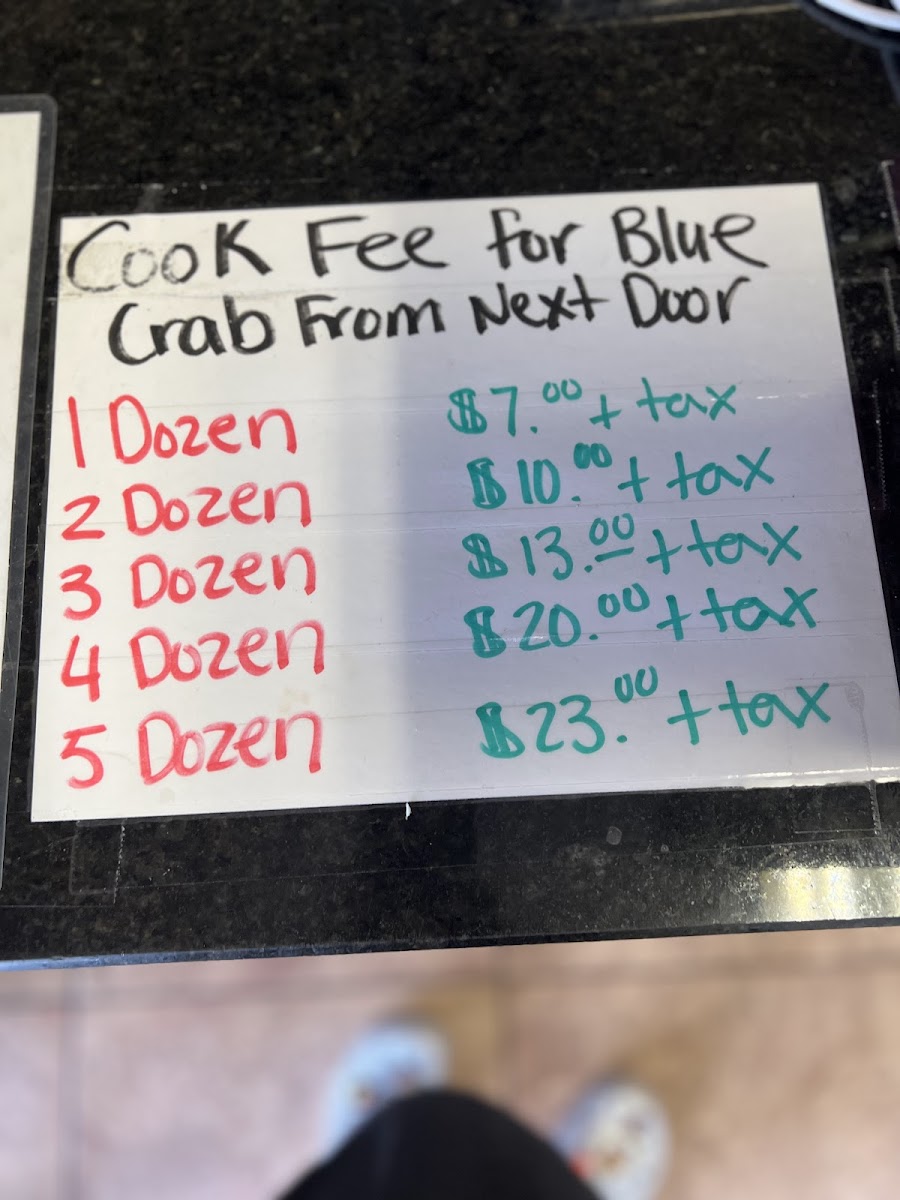 Cook Fee for Blue
Crab From Next Door
1 Dozen $7.00 + tax
2 Dozen $10.00 + tax
3 Dozen $13.00 + tax
4 Dozen $20.00 + tax
5 Dozen $23.00 + tax